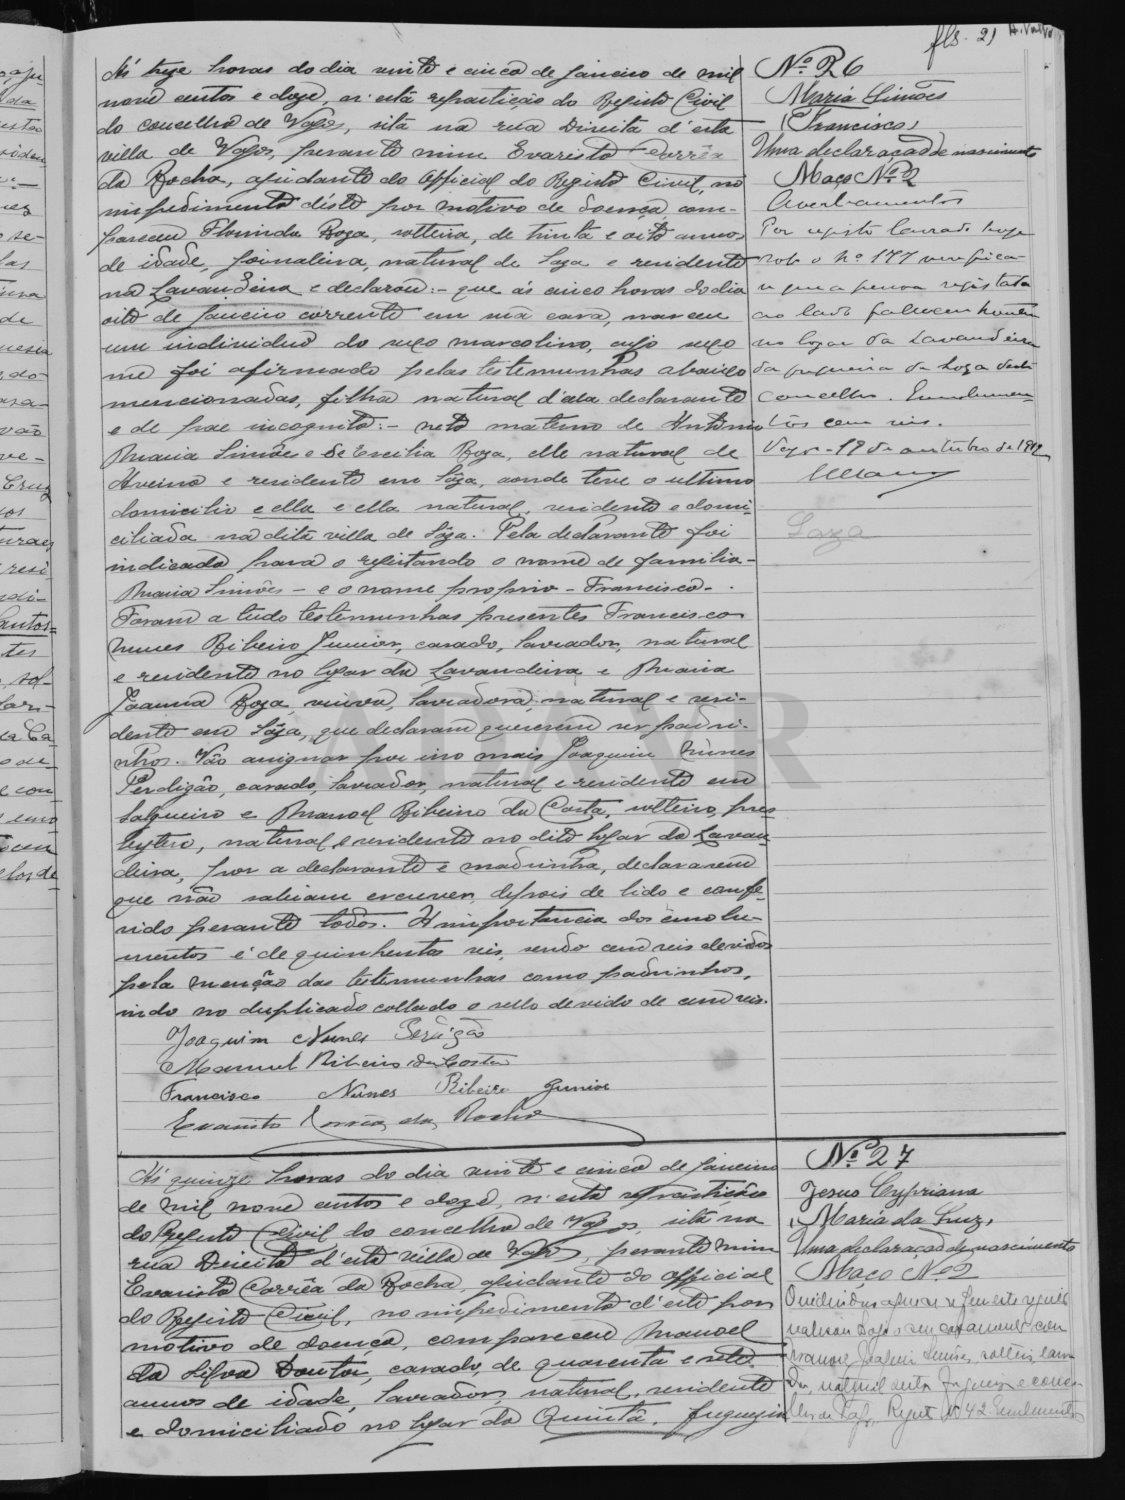 fls. 21
Nº 26
Maria Simões
(Francisco)
Uma declaração de nascimento
Maço Nº 2
Averbamentos
Por registo lavrado hoje
sob o nº 177 verifica-
se que a pessoa registada
ao lado falleceu hontem
no logar da Lavandeira
da freguesia de Soza deste
concelho. Emolumen-
tos cem reis.
Vagos - 19 de outubro de 1912
Soza
Ás treze horas do dia vinte e cinco de Janeiro de mil
nove centos e doze, n'esta repartição do Registo Civil
do concelho de Vagos, sita na rua Direita d'esta
villa de Vagos, perante mim Evaristo Corrêa
da Rocha, ajudante do Official do Registo Civil, no
impedimento d'este por motivo de doença com-
pareceu Florinda Roza, solteira, de trinta e oito annos
de idade, jornaleira, natural de Soza e residente
na Lavandeira e declarou:- que ás cinco horas do dia
oito de Janeiro corrente em sua casa, nasceu
um individuo do sexo masculino, cujo sexo
me foi afirmado pelas testemunhas abaixo
mencionadas, filho natural d'ela declarante
e de pae incognito:- neto materno de Antonio
Maria Simões e de Ercilia Roza, elle natural de
Aveiro e residente em Sôza, aonde teve o ultimo
domicilio e ella e ella natural, residente e domi-
ciliada na dita villa de Sôza. Pela declarante foi
indicado para o registando o nome de familia-
Maria Simões - e o nome proprio - Francisco-.
Foram a tudo testemunhas presentes Francisco
Nunes Ribeiro Junior, casado, lavrador, natural
e residente no logar da Lavandeira e Maria
Joanna Roza, viuva, lavradora, natural e resi-
dente em Sôza, que declaram quererem ser padri-
nhos. Vão assignar por isso mais Joaquim Nunes
Perdigão, casado, lavrador, natural e residente em
Salgueiro e Manoel Ribeiro da Costa, solteiro, pres
bytero, natural e residente no dito logar da Lavan
deira, por a declarante e madrinha, declararem
que não sabiam escrever, depois de lido e confe-
rido perante todos. A importancia dos emolu-
mentos é de quinhentos reis, sendo cem reis devidos
pela menção das testemunhas como padrinhos,
indo no duplicado collado o sello devido de cem reis.
Joaquim Nunes Perdigão
Manuel Ribeiro da Costa
Francisco Nunes Ribeiro Junior
Evaristo Corrêa da Rocha
Nº 27
Jesus Cypriana
(Maria da Luz)
Uma declaração de nascimento
Maço Nº 2
realisou hoje o seu casamento com
Manoel Joaquim Simões, solteiro, lavra
dor, natural desta freguezia e conce-
lho de Vagos, Registo Nº 42 Emolumentos
Ás quinze horas do dia vinte e cinco de Janeiro
de mil nove centos e doze, n'esta repartição
do Registo Civil do concelho de Vagos, sita na
rua Direita d'esta villa de Vagos, perante mim
Evaristo Corrêa da Rocha, ajudante do official
do Registo Civil, no impedimento d'este por
motivo de doença, compareceu Manoel
da Silva Doutor, casado, de quarenta e sete
annos de idade, lavrador, natural, residente
e domiciliado no logar da Quintã, freguezia